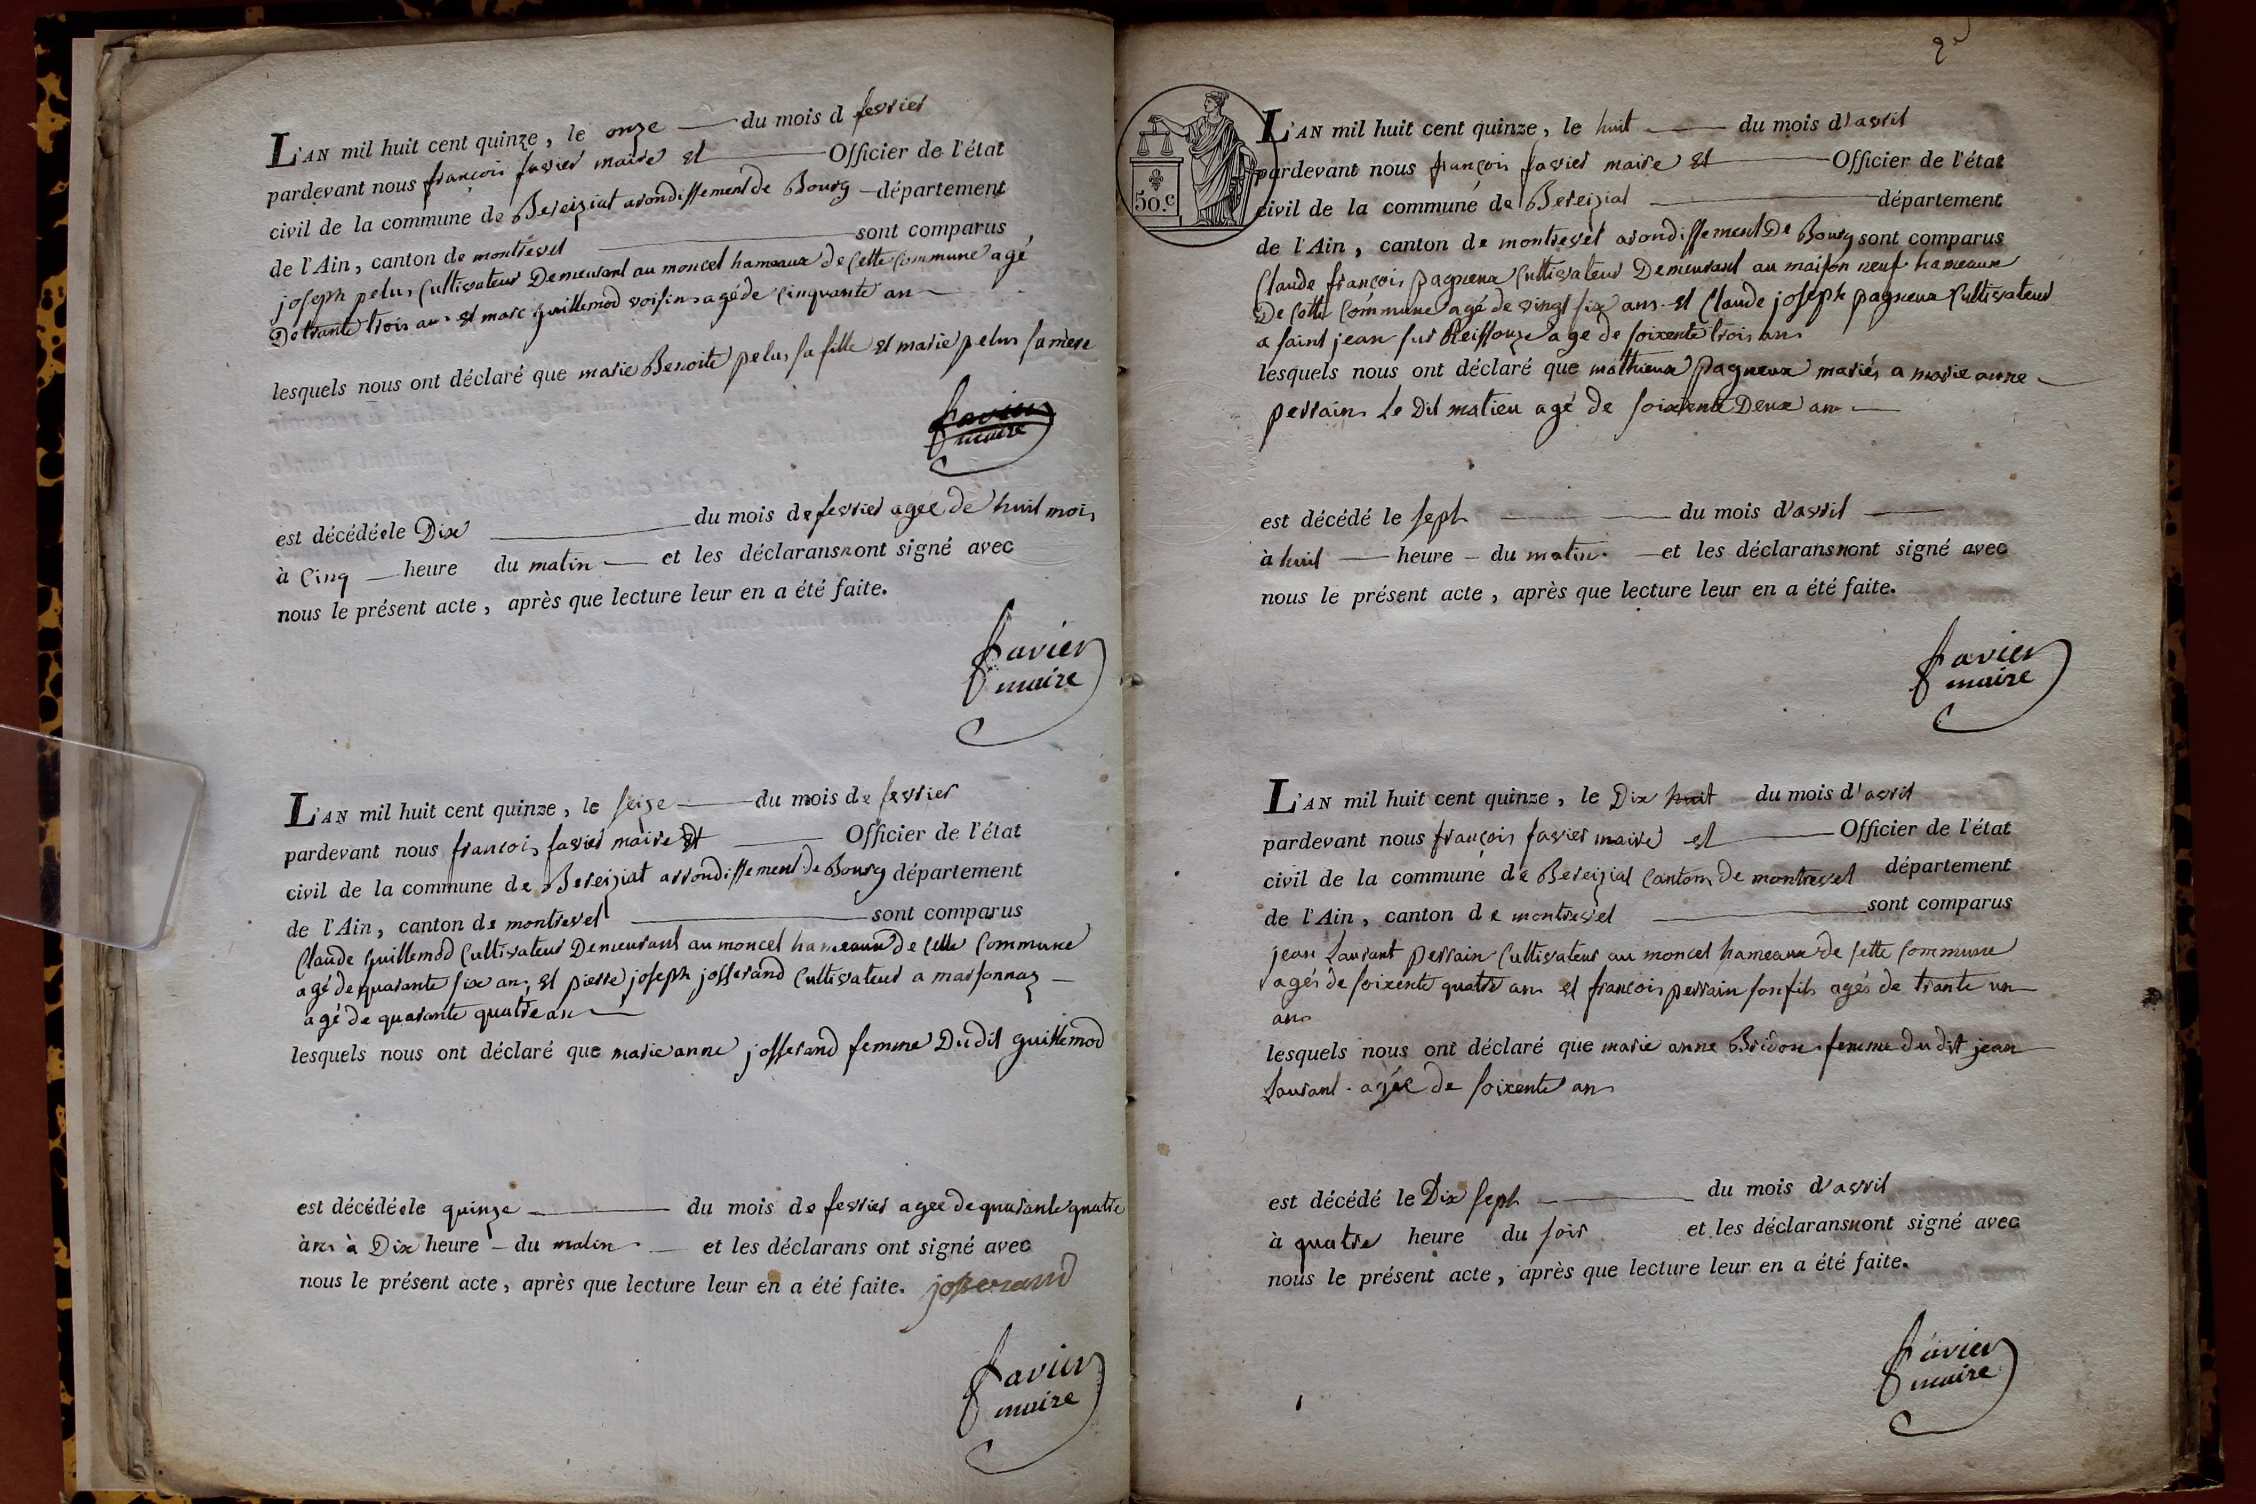 L'AN mil huit cent quinze, le onze du mois d fevrier
pardevant nous françois favier maire et Officier de l'état
civil de la commune de Bereiziat arondissement de Bourg département
de l'Ain, canton de montrevel sont comparus
joseph pelus Cultivateur Demeurant au moncel hameaux de Cette Commune agé
De trante trois ans et marc guillemod voisins agé de Cinquante an
lesquels nous ont déclaré que marie Benoite pelus sa fille et marie pelus sa mere
favier
maire
est décédée le Dix du mois de fevrier agee de huit mois
à Cinq heure du matin et les déclarans nont signé avec
nous le présent acte, après que lecture leur en a été faite.
favier
maire
L'AN mil huit cent quinze, le seize du mois de fevrier
pardevant nous francois favier maire et Officier de l'état
civil de la commune de Bereiziat arrondissement de Bourg département
de l'Ain, canton de montrevel sont comparus
Claude guillemod Cultivateur Demeurant au moncel hameaux de Cette Commune
agé de quarante six ans, et pierre joseph josserand Cultivateur a marsonnaz
agé de quarante quatre an
lesquels nous ont déclaré que marie anne josserand femme Dudit guillemod
est décédée le quinze du mois de fevrier agee de quarante quatre
ans à Dix heure du matin et les déclarans ont signé avec
nous le présent acte, après que lecture leur en a été faite. josserand
favier
maire
2e
50.c
L'AN mil huit cent quinze, le huit du mois d'avril
pardevant nous françois favier maire et Officier de l'état
civil de la commune de Bereiziat département
de l'Ain, canton de montrevel arondissement De Bourg sont comparus
Claude françois pagneux Cultivateur Demeurant au maison neuf hameaux
De Cette Commune agé de vingt six ans et Claude joseph pagneux Cultivateur
a saint jean sur Reissouze age de soixente trois ans
lesquels nous ont déclaré que mathieux pagneux mariés a marie anne
perrain Le Dit matieu agé de soixente Deux an
est décédé le sept du mois d'avril
à huit heure du matin et les déclarans nont signé avec
nous le présent acte, après que lecture leur en a été faite.
favier
maire
L'AN mil huit cent quinze, le Dix huit du mois d'avril
pardevant nous françois favier maire et Officier de l'état
civil de la commune de Bereiziat Canton de montrevel département
de l'Ain, canton de montrevel sont comparus
jean Laurant perrain Cultivateur au moncel hameaux de sette Commune
agés de soixente quatre ans et francois perrain son fils agés de trante un
ans
lesquels nous ont déclaré que marie anne Bridon femme du dit jean
Laurant agée de soixente ans
est décédé le Dix sept du mois d'avril
à quatre heure du soir et les déclarans nont signé avec
nous le présent acte, après que lecture leur en a été faite.
favier
maire